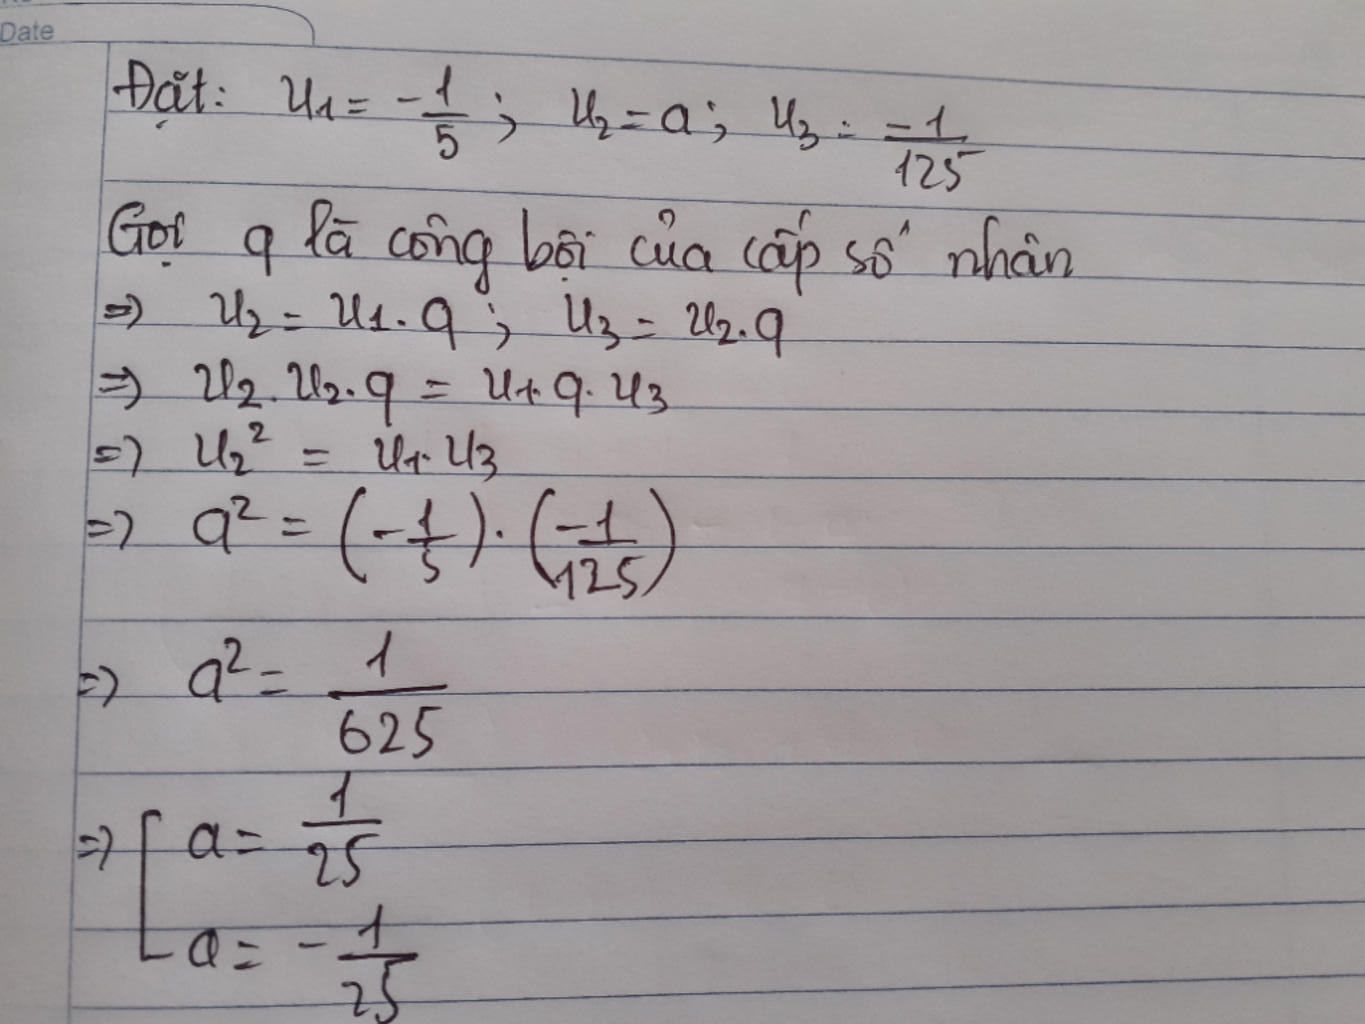 Date
Đặt: u₁ = -1/5 ; u₂ = a ; u₃ = -1/125
Gọi q là công bội của cấp số nhân
=> u₂ = u₁. q ; u₃ = u₂. q
=> u₂. u₂. q = u₁. q. u₃
=> u₂² = u₁. u₃
=> a² = (-1/5). (-1/125)
=> a² = 1/625
=> [ a = 1/25
a = -1/25